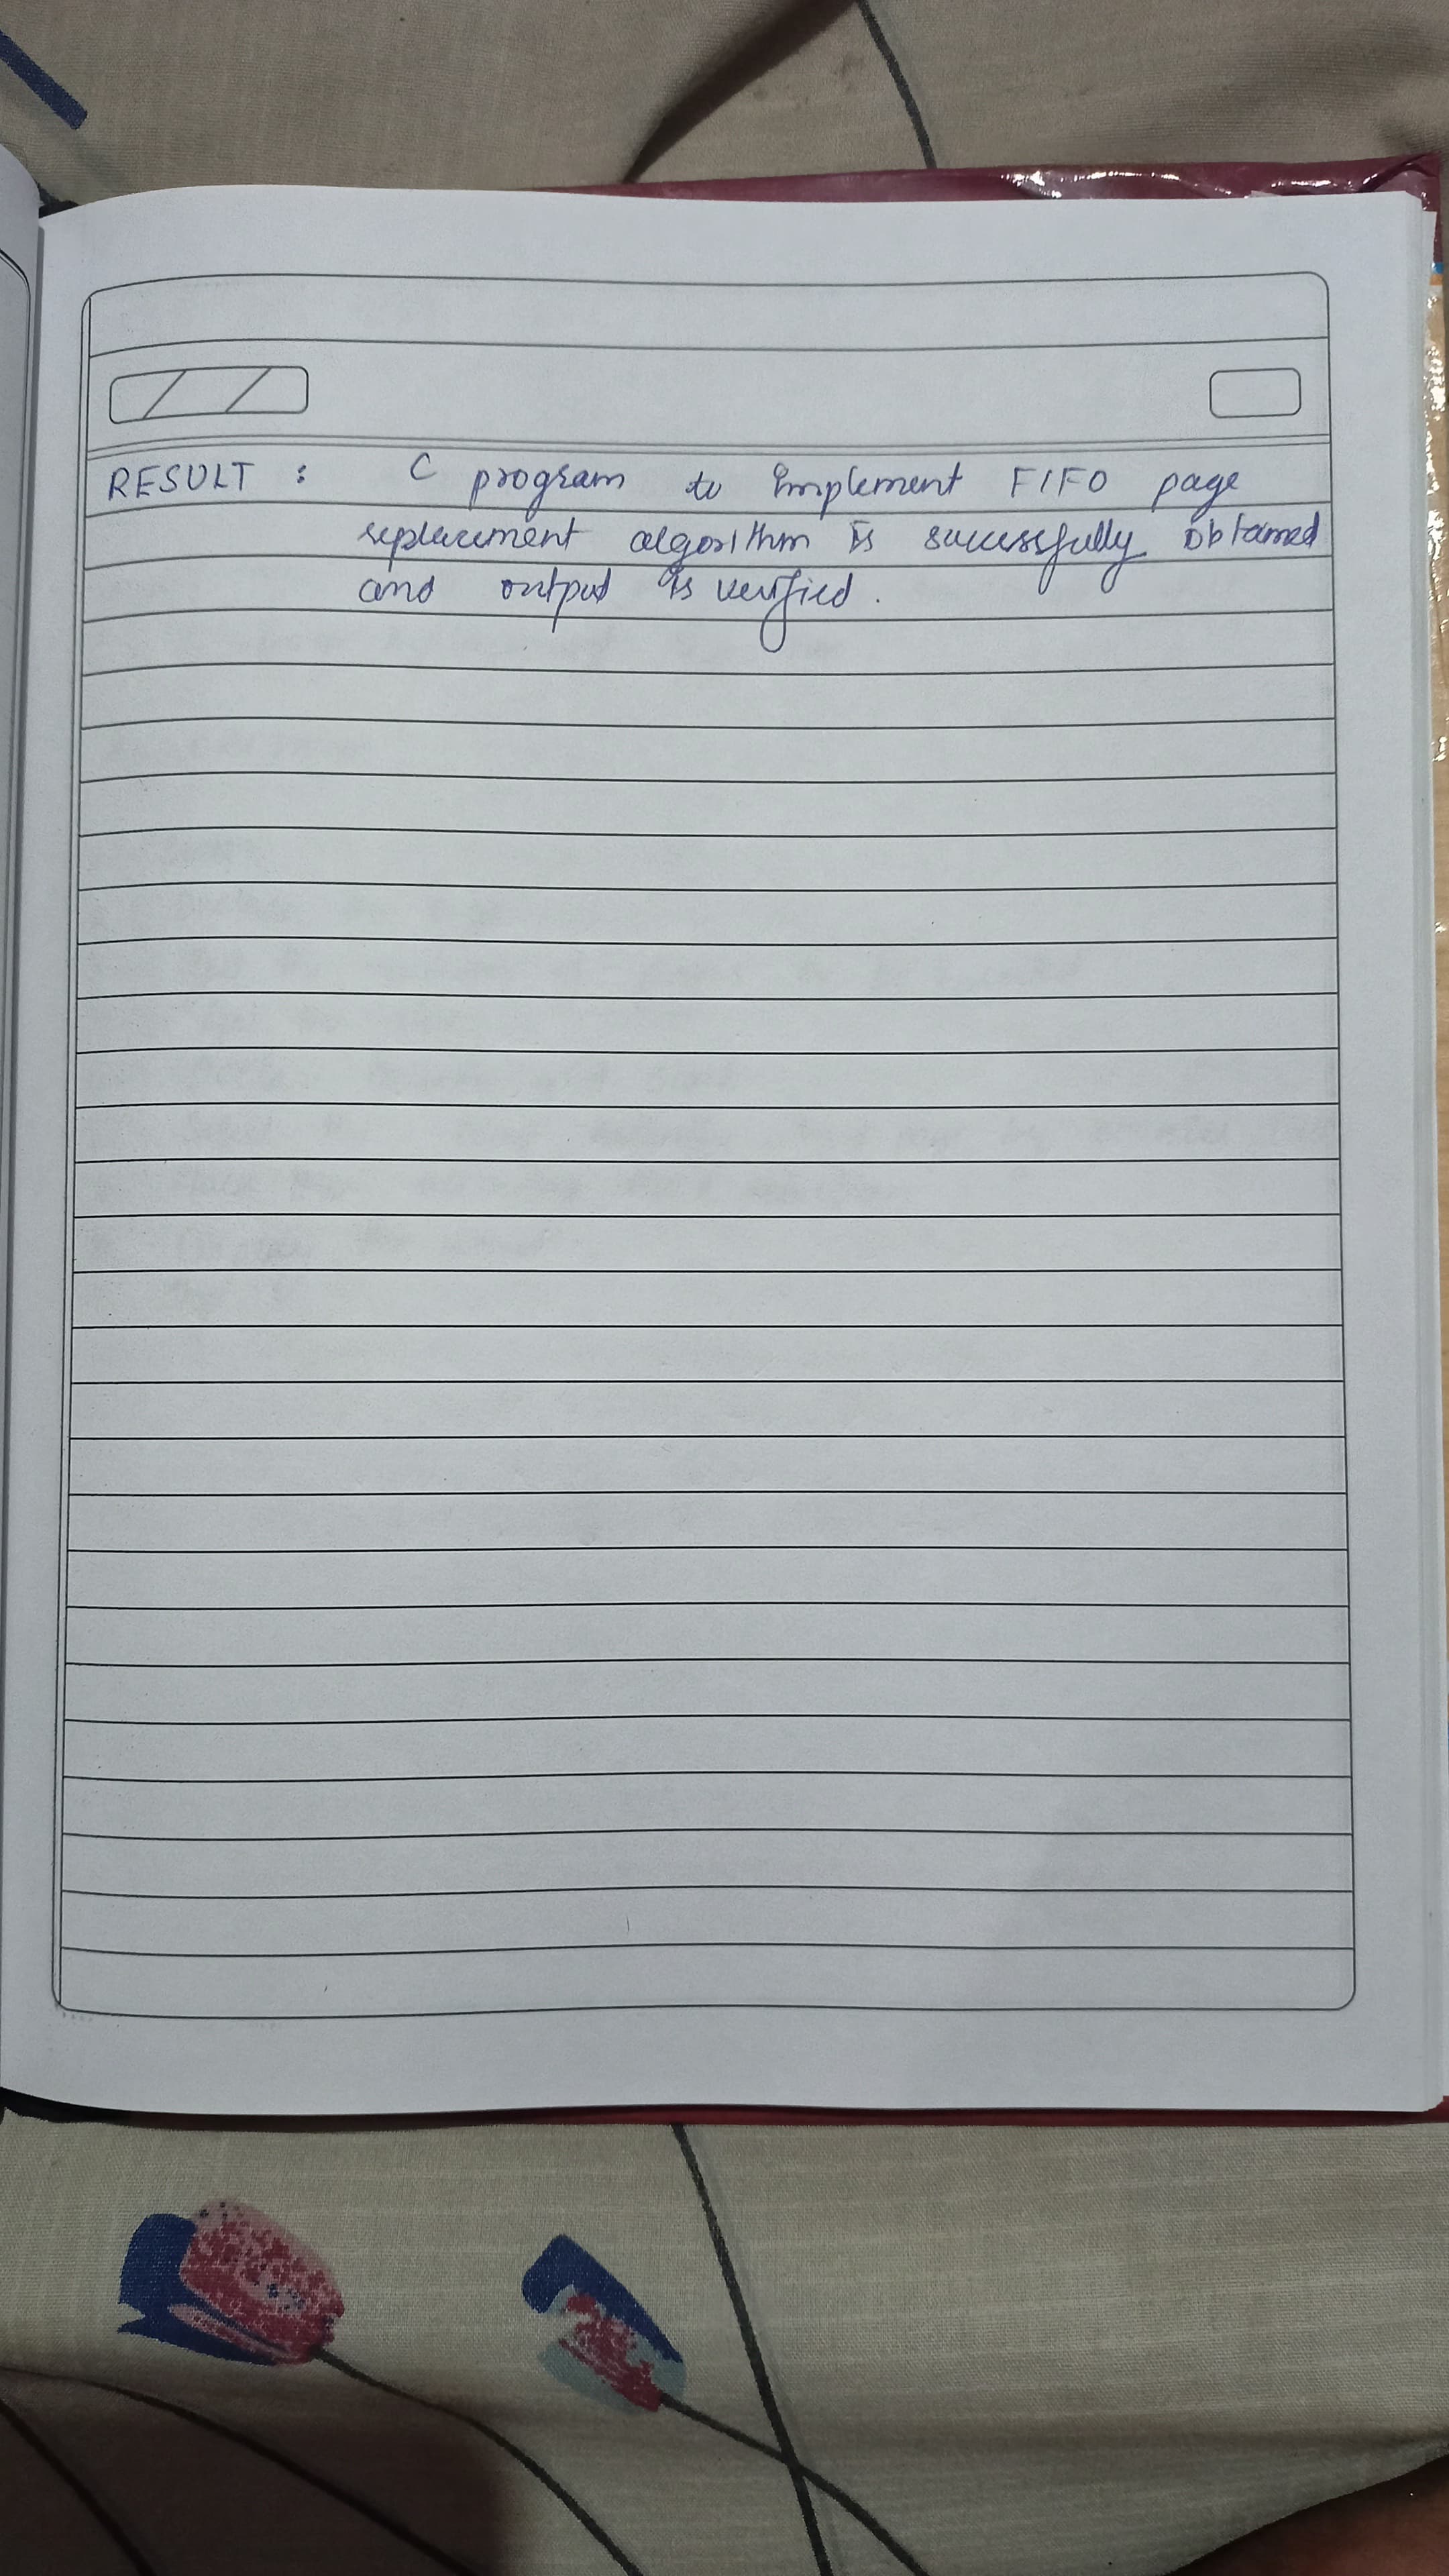 RESULT : C program to implement FIFO page
replacement algorithm is successfully obtained
and output is verified.